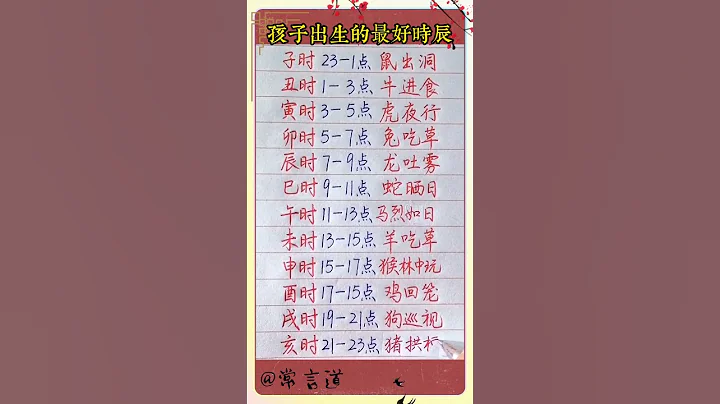 孩子出生的最好時辰
子时 23-1点 鼠出洞
丑时 1-3点 牛进食
寅时 3-5点 虎夜行
卯时 5-7点 兔吃草
辰时 7-9点 龙吐雾
巳时 9-11点 蛇晒日
午时 11-13点 马烈如日
未时 13-15点 羊吃草
申时 15-17点 猴林中玩
酉时 17-15点 鸡回笼
戌时 19-21点 狗巡视
亥时 21-23点 猪拱
@常言道